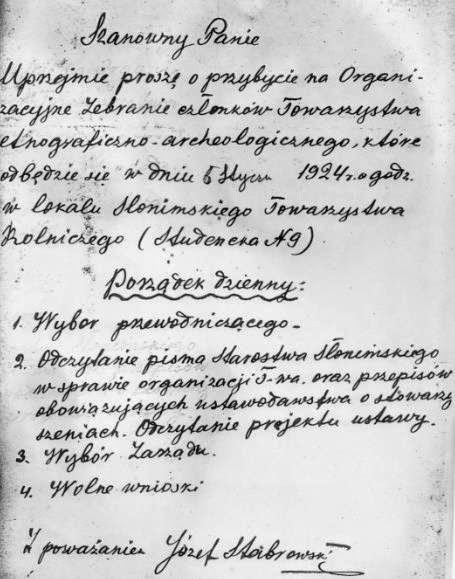 Szanowny Panie
Uprzejmie proszę o przybycie na Organi-
zacyjne Zebranie członków Towarzystwa
etnograficzno-archeologicznego, które
odbędzie się w dniu 5 Stycz 1924 r. o godz.
w lokalu Słonimskiego Towarzystwa
Rolniczego (Studencka N 9)
Porządek dzienny:
1. Wybor przewodniczącego-
2. Odczytanie pisma Starostwa Słonimskiego
w sprawie organizacji T-wa. oraz przepisów
obowiązujących ustawodawstwa o stowarzy
szeniach. Odczytanie projektu ustawy.
3. Wybór Zarządu.
4. Wolne wnioski
Z poważaniem Józef Stabrowski